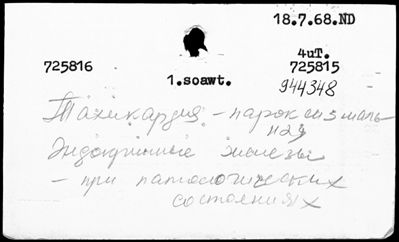 18.7.68.ND
4uT.
725816
725815
1.soawt.
944348
Тахикардия - пароксизмаль
ная
Эндокринные железы
- при патологических
состояниях